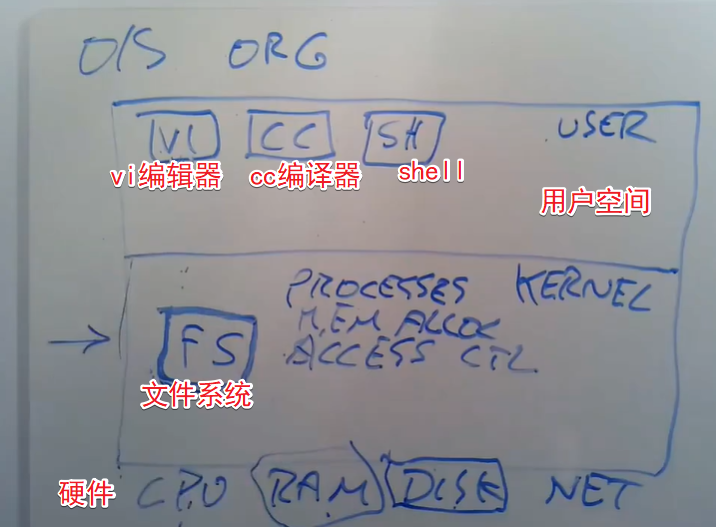 O/S ORG
VI CC SH USER
vi编辑器 cc编译器 shell
用户空间
PROCESSES KERNEL
MEM ALLOC
FS ACCESS CTL
文件系统
硬件 CPU RAM DISK NET